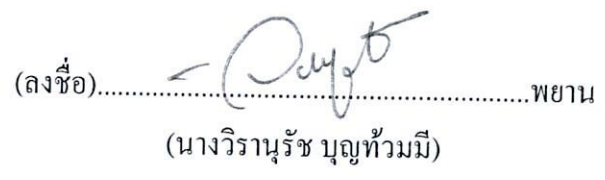 (ลงชื่อ)..........................................................พยาน
(นางวิรานุรัช บุญท้วมมี)